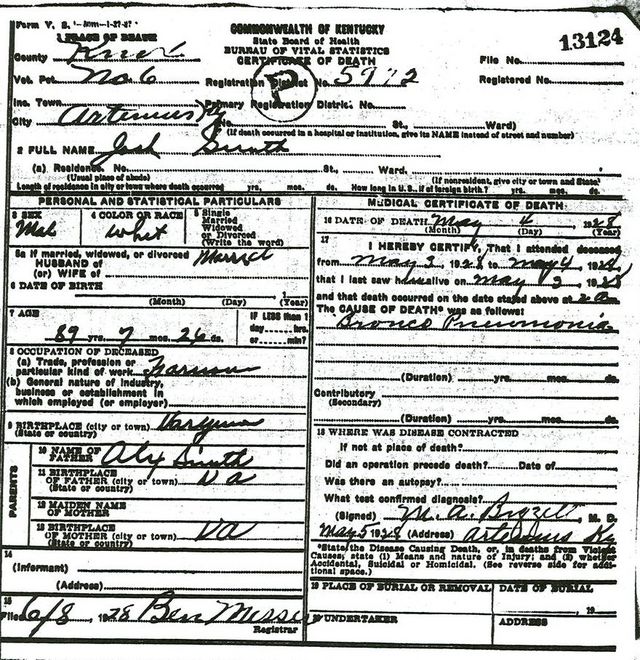 Form V. S. 1-50m-1-27-27
COMMONWEALTH OF KENTUCKY
State Board of Health
BUREAU OF VITAL STATISTICS
CERTIFICATE OF DEATH
13124
1 PLACE OF DEATH
County Knox
File No.
Vot. Pct. No 6
Registration District No. 5972
Registered No.
P
Inc. Town
Primary Registration District No.
City Artemus Ky
No. St., Ward)
(If death occurred in a hospital or institution, give its NAME instead of street and number)
2 FULL NAME Josh Smith
(a) Residence. No. St., Ward.
(Usual place of abode) (If nonresident, give city or town and State)
Length of residence in city or town where death occurred yrs. mos. ds. How long in U. S., if of foreign birth? yrs. mos. ds.
PERSONAL AND STATISTICAL PARTICULARS
3 SEX
Male
4 COLOR OR RACE
whit
5 Single
Married
Widowed
or Divorced
(Write the word)
Married
5a If married, widowed, or divorced
HUSBAND of
(or) WIFE of
6 DATE OF BIRTH
(Month) (Day) (Year)
7 AGE
89 yrs. 7 mos. 26 ds.
IF LESS than 1
day hrs.
or min?
8 OCCUPATION OF DECEASED
(a) Trade, profession or
particular kind of work Farmer
(b) General nature of industry,
business or establishment in
which employed (or employer)
9 BIRTHPLACE (city or town)
(State or country)
PARENTS
10 NAME OF
FATHER Alex Smith
11 BIRTHPLACE
OF FATHER (city or town) Va
(State or country)
12 MAIDEN NAME
OF MOTHER
13 BIRTHPLACE
OF MOTHER (city or town) Va
(State or country)
14
(Informant)
(Address)
15
Filed 6/8, 1928 Ben Messer
Registrar
MEDICAL CERTIFICATE OF DEATH
16 DATE OF DEATH May 4 1928
(Month) (Day) (Year)
17
I HEREBY CERTIFY, That I attended deceased
from May 3, 1928 to May 4, 1928,
that I last saw him alive on May 3 1928
and that death occurred on the date stated above at 2 am.
The CAUSE OF DEATH* was as follows:
Bronco Pneumonia
(Duration) yrs. mos. ds.
Contributory
(Secondary)
(Duration) yrs. mos. ds.
18 WHERE WAS DISEASE CONTRACTED
If not at place of death?
Did an operation precede death? Date of
Was there an autopsy?
What test confirmed diagnosis?
(Signed) M. A. M. D.
May 5 1928 (Address) Artemus Ky
*State the Disease Causing Death, or, in deaths from Violent
Causes, state (1) Means and nature of Injury; and (2) whether
Accidental, Suicidal or Homicidal. (See reverse side for addi-
tional space.)
19 PLACE OF BURIAL OR REMOVAL
DATE OF BURIAL
19
20 UNDERTAKER
ADDRESS